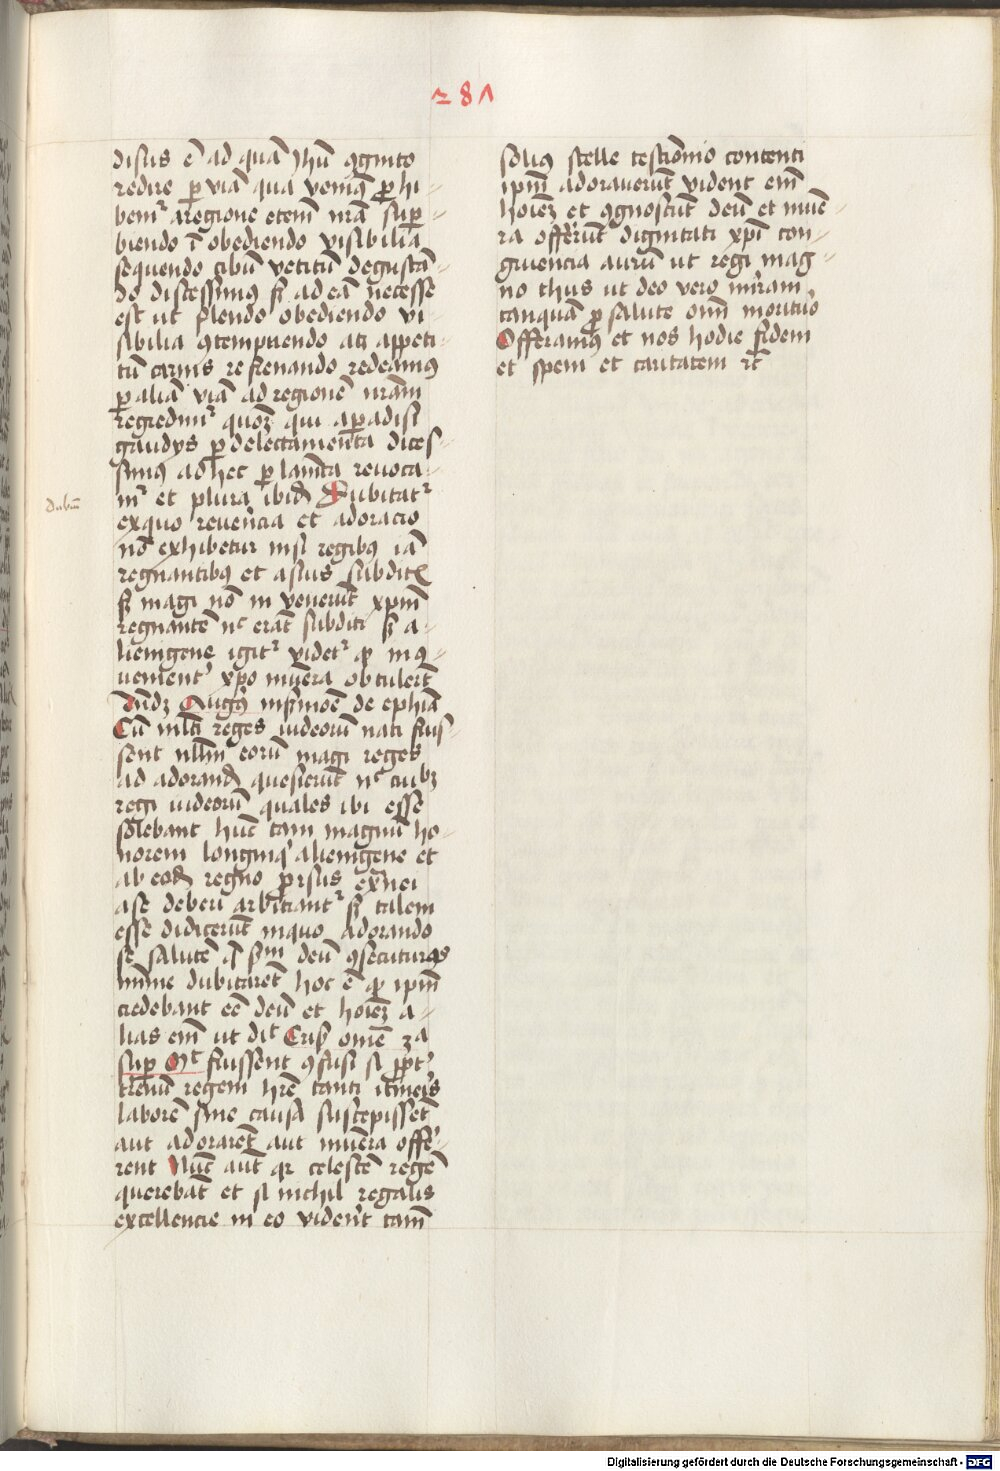 281
disus ē ad quā Jhū ꝯgnito
redire ꝑ viā qua venimꝰ ꝓhi-
bemʳ a regione etem̄ nrā suꝑ-
biendo ī obediendo visibilia
sequendo cibū vetitū degustā-
do discessimus sꝫ ad eā necesse
est ut flendo obediendo vi-
sibilia ꝯtempnendo atꝫ appeti-
tū carnis refrenando redeamꝰ
ꝑ aliā viā ad regionē nrām
regredimʳ quoꝫ qui a ꝑadisi
gaudys ꝑ delectamenta disces-
simꝰ ad hec ꝑ lamēta reuoca-
mʳ et plura ibid Dubitatʳ
Dubiū
exquo reuerīcia et adoracio
nō exhibetur nisi regibꝰ iā
regnantibꝰ et a suis subditꝭ
sꝫ magi nō in venerūt xpm̄
regnantē nᶜ erāt subditi sꝫ a-
lienigene igitʳ videtʳ ꝙ inꝯ-
uenientʳ xpo mūera obtulerūt
Rndꝫ Augꝰ in sermōe de ephīa
Cū mlti reges iudeorū nati fuis-
sent nllm̄ eorū magi reges
ad adorand quesierūt nᶜ cuibꝫ
regi iudeorū quales ibi esse
solebant hūc tam magnū ho-
norem longinqͥ alienigene et
ab eod regno prsus extͣnei
a se deberi arbitrantʳ sꝫ talem
esse didicerūt in quo adorando
se salutē q̄ scdm deū ꝯsecuturos
mīme dubitarēt hoc ē ꝙ ipm̄
credebant eē deū et hoīeꝫ a-
lias em̄ ut dīt Crisꝰ omeꝉ 3a
suꝑ Mᵗ fuissent ꝯfusi si ꝓpt
trenū regem hrē tanti itineris
laborē sine causa suscepissēt
aut adorarēt aut mūera offe-
rent Nūc aut qr celestē regē
querebāt et si nichil regalis
excellencie in eo viderūt tam̄
solius stelle testiōnio contenti
ipm̄ adorauerūt vident em̄
hoīeꝫ et ꝯgnoscūt deū et mūe-
ra offerūt dignitati xpī con-
gruencia aurū ut regi mag-
no thus ut deo vero mirram
tanquā ꝑ salute om̄ morituro
Offeramꝰ et nos hodie fidem
et spem et caritatem rc̄
Digitalisierung gefördert durch die Deutsche Forschungsgemeinschaft - DFG